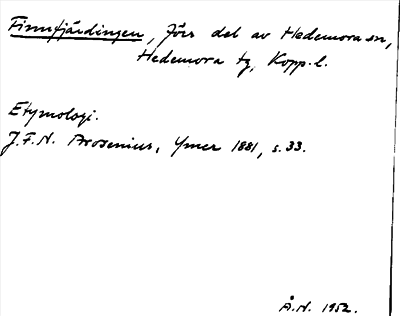 Finnfjärdingen, förr del av Hedemora sn,
Hedemora tg, Kopp. l.
Etymologi.
J.F.N. Arosenius, Ymer 1881, s. 33.
Å.N. 1952.